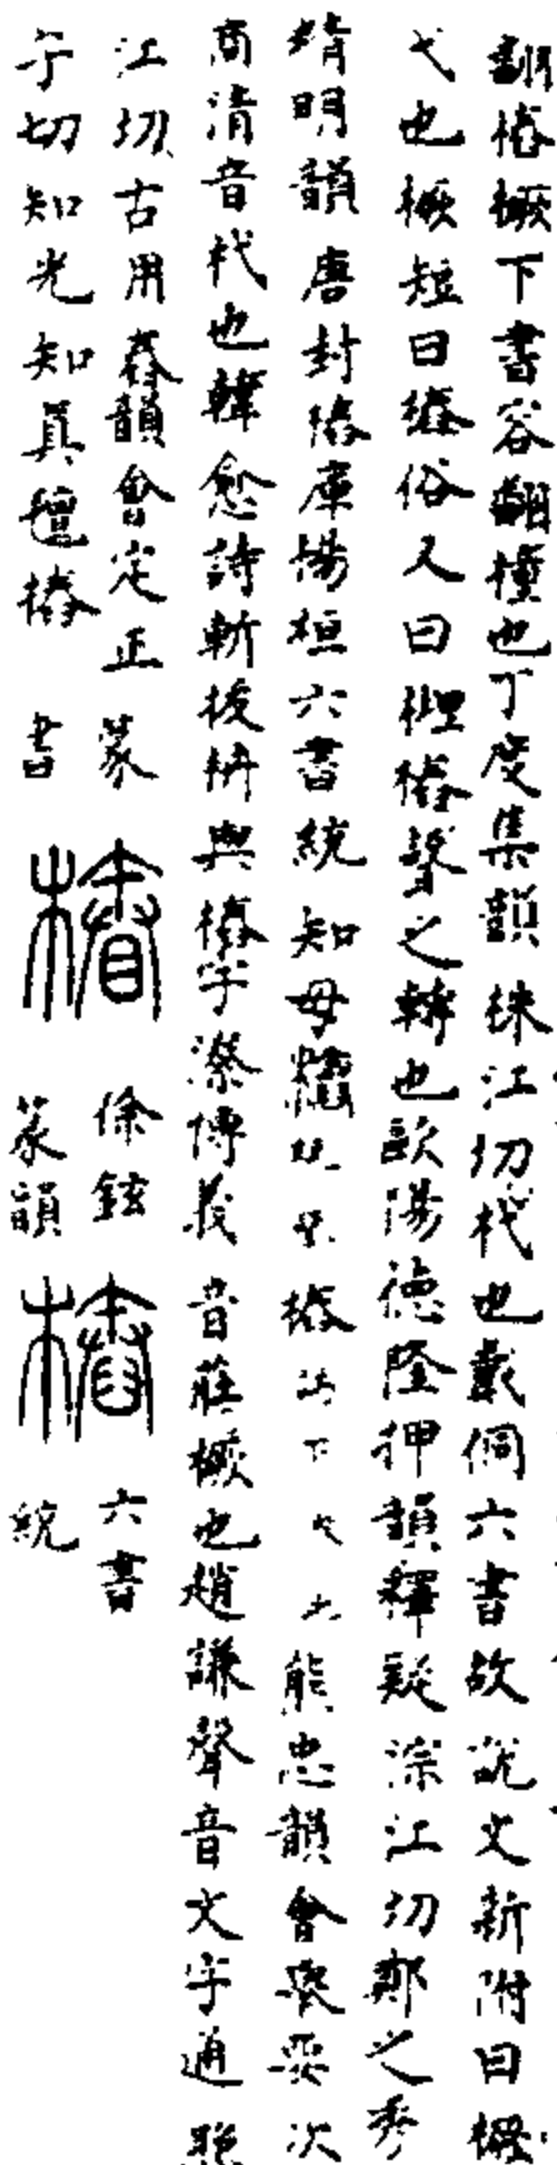 翻樁橛下書容翻橦也丁度集韻株江切杙也戴侗六書故說文新附曰橛
弋也橛短曰樁俗又曰樁聲之轉也歐陽德隆押韻釋疑淙江切鄭之秀
精明韻唐封除庫楊桓六書統知母樁熊忠韻會舉要次
商清音杙也韓愈詩斬拔枿與樁字潫博義音莊橛也趙謙聲音文字通
江切古用舂韻會定正篆樁徐鉉樁六書
字切知光知真氊樁書篆韻統